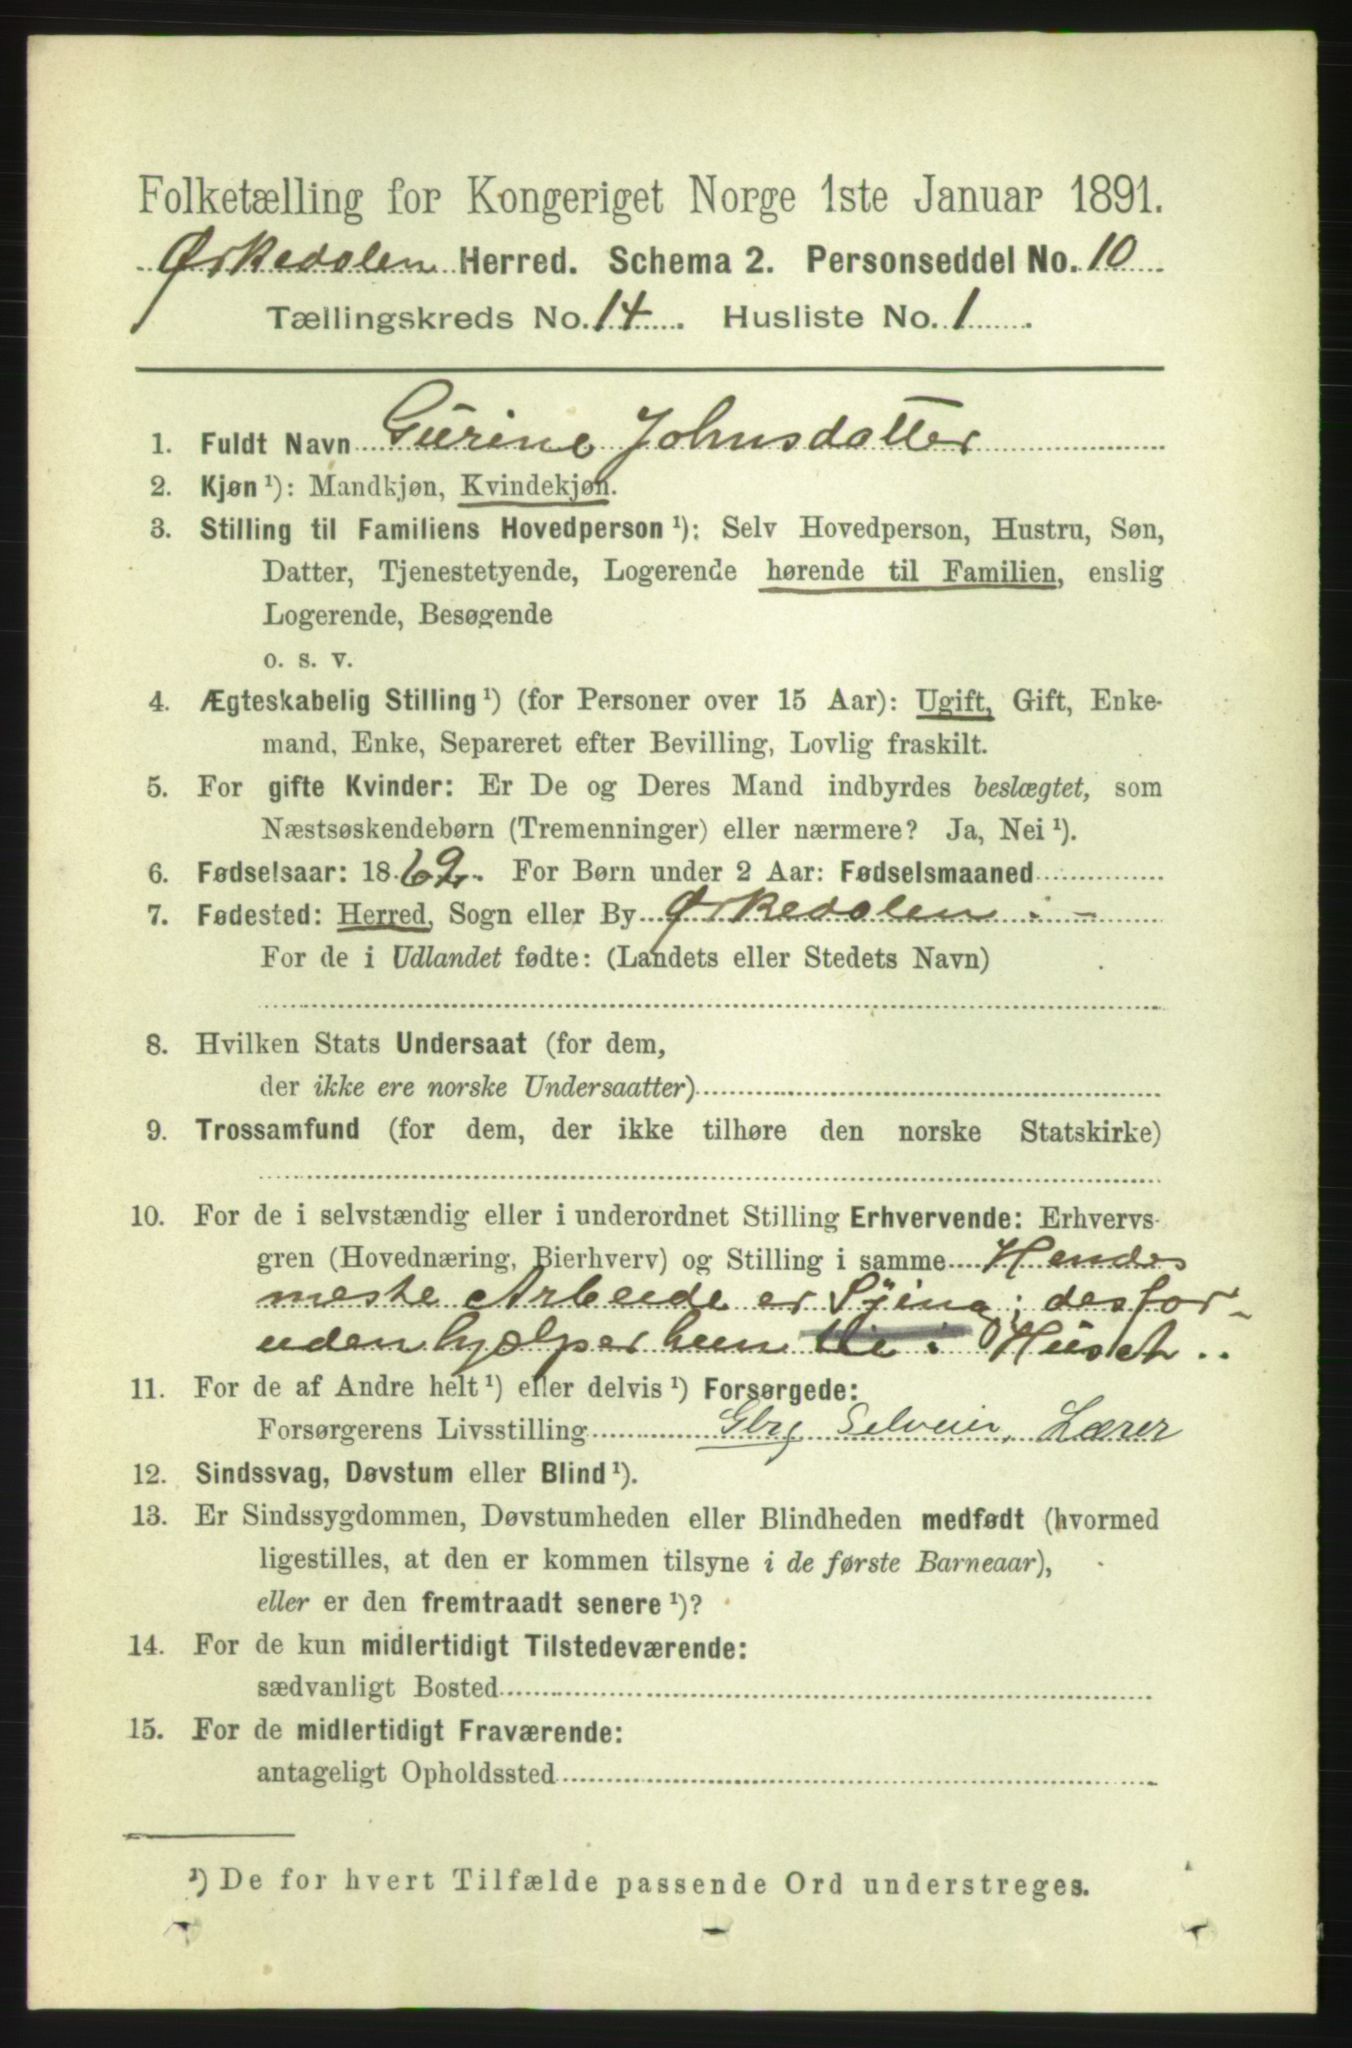 Folketælling for Kongeriget Norge 1ste Januar 1891.
Ørkedalen Herred. Schema 2. Personseddel No. 10
Tællingskreds No. 14. Husliste No. 1
1. Fuldt Navn Gurine Johnsdatter
2. Kjøn ¹): Mandkjøn, Kvindekjøn.
3. Stilling til Familiens Hovedperson ¹): Selv Hovedperson, Hustru, Søn,
Datter, Tjenestetyende, Logerende hørende til Familien, enslig
Logerende, Besøgende
o. s. v.
4. Ægteskabelig Stilling ¹) (for Personer over 15 Aar): Ugift, Gift, Enke-
mand, Enke, Separeret efter Bevilling, Lovlig fraskilt.
5. For gifte Kvinder: Er De og Deres Mand indbyrdes beslægtet, som
Næstsøskendebørn (Tremenninger) eller nærmere? Ja, Nei ¹).
6. Fødselsaar: 1869. For Børn under 2 Aar: Fødselsmaaned
7. Fødested: Herred, Sogn eller By Ørkedalen
For de i Udlandet fødte: (Landets eller Stedets Navn)
8. Hvilken Stats Undersaat (for dem,
der ikke ere norske Undersaatter)
9. Trossamfund (for dem, der ikke tilhøre den norske Statskirke)
10. For de i selvstændig eller i underordnet Stilling Erhvervende: Erhvervs-
gren (Hovednæring, Bierhverv) og Stilling i samme Hendes
meste Arbeide er Sying; desfor-
uden hjælper hun til i Huset.
11. For de af Andre helt ¹) eller delvis ¹) Forsørgede:
Forsørgerens Livsstilling Lærer
12. Sindssvag, Døvstum eller Blind ¹).
13. Er Sindssygdommen, Døvstumheden eller Blindheden medfødt (hvormed
ligestilles, at den er kommen tilsyne i de første Barneaar),
eller er den fremtraadt senere ¹)?
14. For de kun midlertidigt Tilstedeværende:
sædvanligt Bosted
15. For de midlertidigt Fraværende:
antageligt Opholdssted
¹) De for hvert Tilfælde passende Ord understreges.